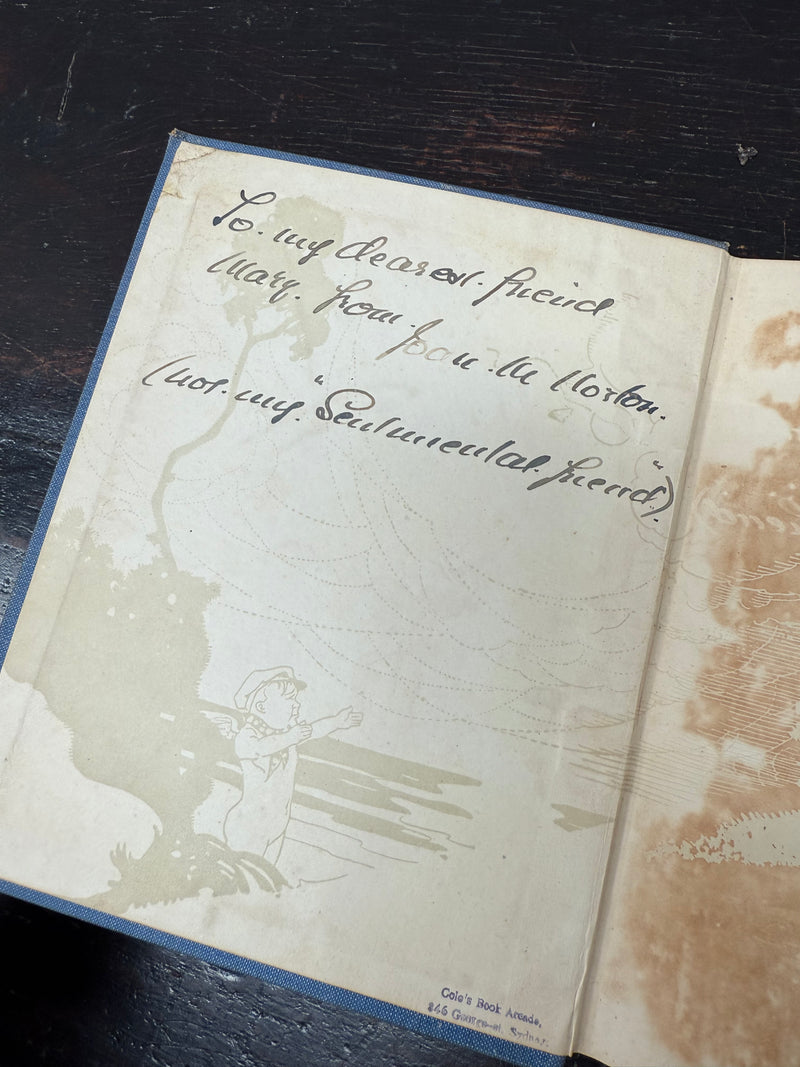 To. my dearest. freind
Mary. from. Joan. M Norton.
(not. my. "Sentimental. freind").
Cole's Book Arcade,
346 George-st. Sydney.